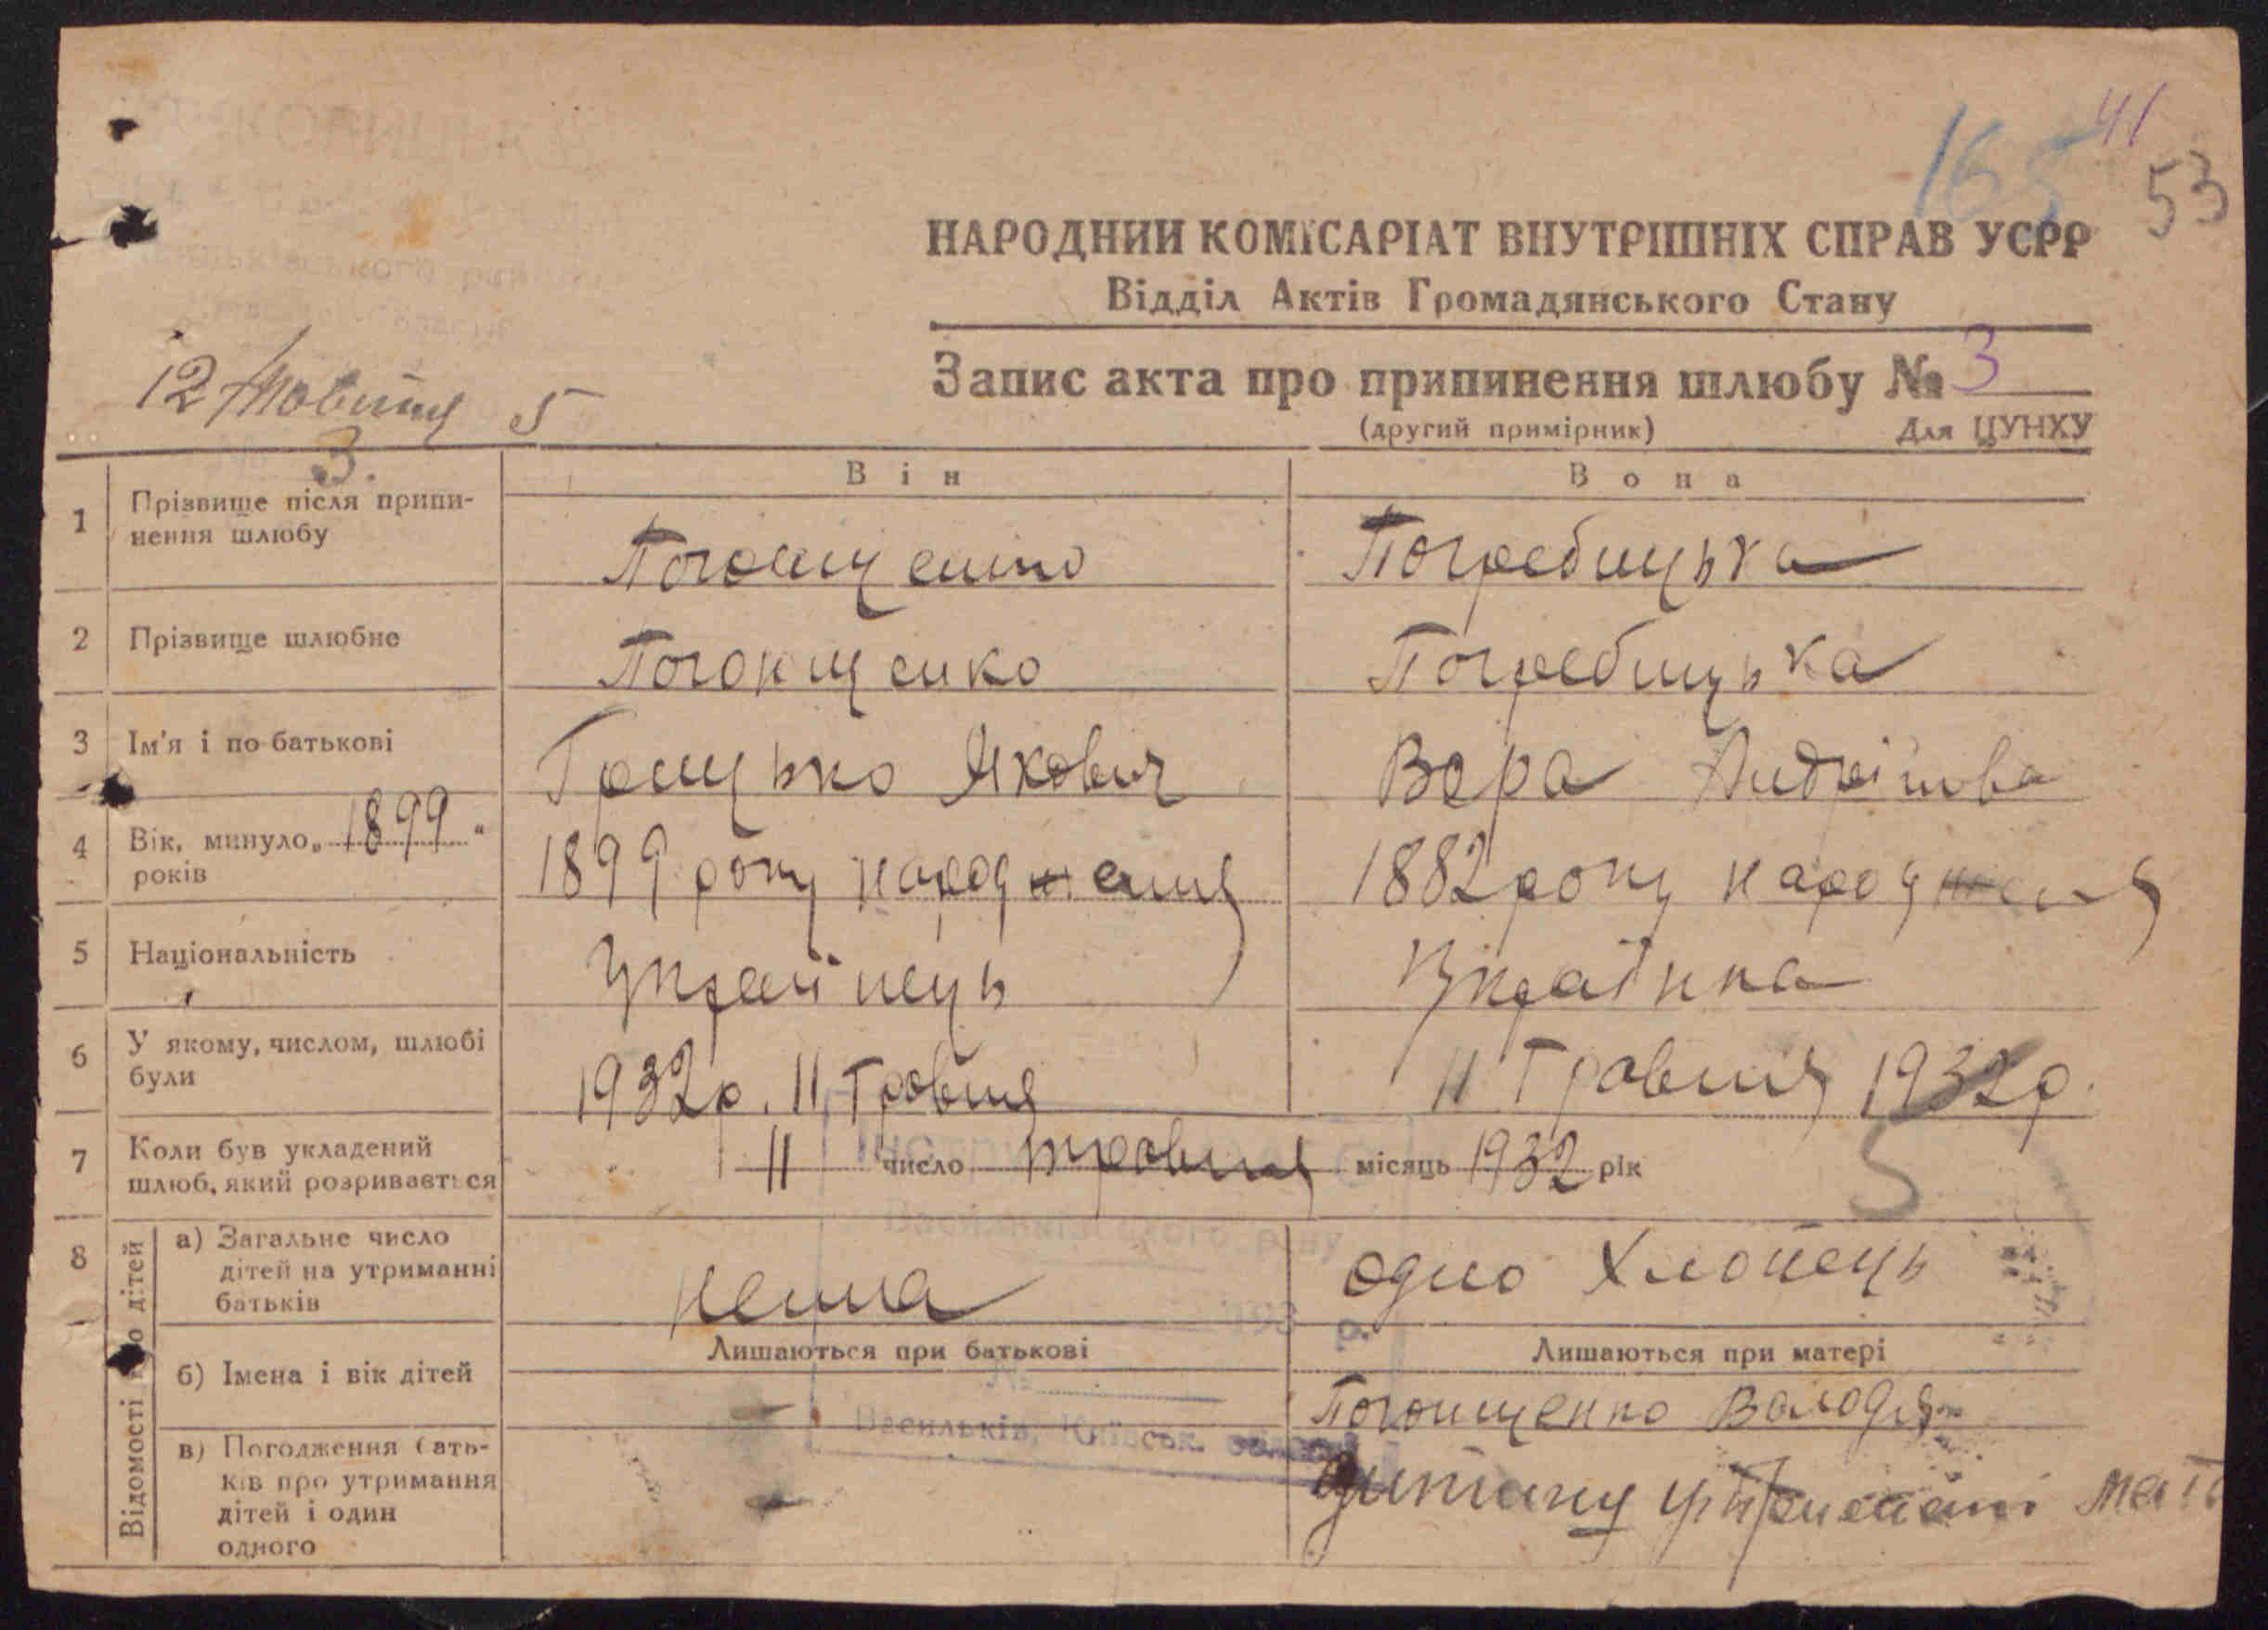 165 41
53
НАРОДНИЙ КОМІСАРІАТ ВНУТРІШНІХ СПРАВ УСРР
Відділ Актів Громадянського Стану
12 Жовтня 5
Запис акта про припинення шлюбу № 3
(другий примірник) Для ЦУНХУ
3.
Він Вона
1 Прізвище після припи-
нення шлюбу
Погонщенко Погребицька
2 Прізвище шлюбне Погонщенко Погребицька
3 Ім'я і по-батькові Грицько Якович Вера Андріївна
4 Вік, минуло „1899“
років
1899 року народження 1882 року народження
5 Національність Українець Українка
6 У якому, числом, шлюбі
були
1932р. 11 Травня 11 Травня 1932р.
5
7 Коли був укладений
шлюб, який розривається
11 число травня місяць 1932 рік
Васильківського р-ну
8 Відомості про дітей
а) Загальне число
дітей на утриманні
батьків
нема одно Хлопець
193 р.
Лишаються при батькові Лишаються при матері
б) Імена і вік дітей
Погонщенко Володя
№
Васильків, Київськ. області
в) Погодження бать-
ків про утримання
дітей і один
одного
дитину